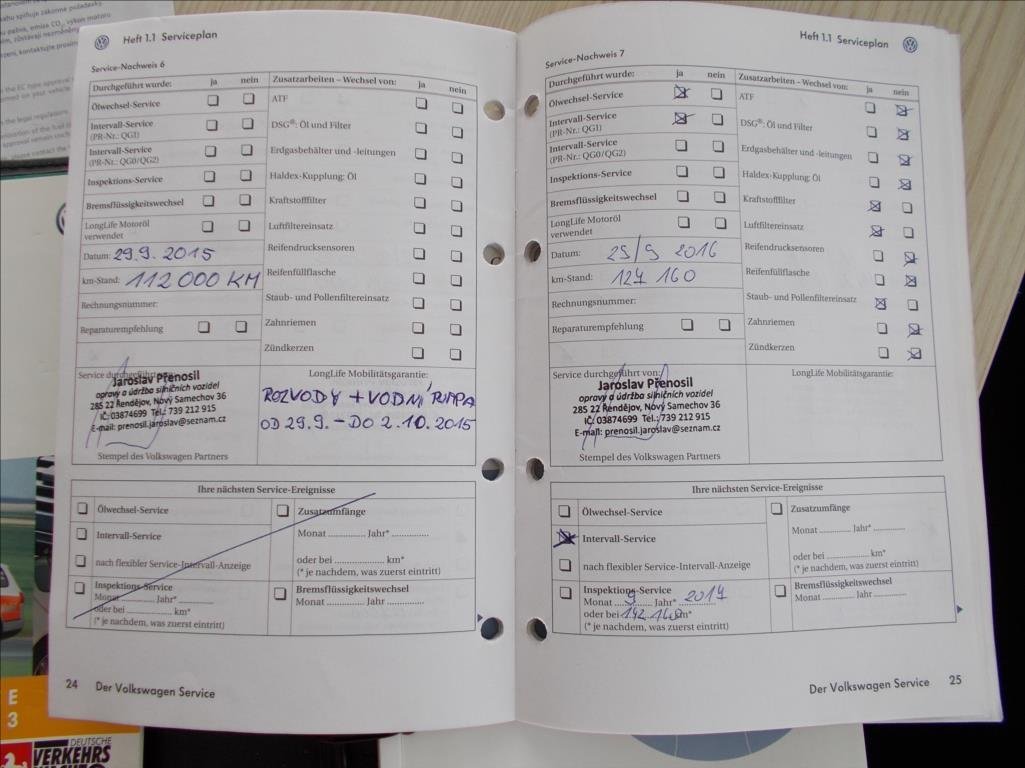 Heft 1.1 Serviceplan
Service-Nachweis 6
Durchgeführt wurde: ja nein
Ölwechsel-Service
Intervall-Service
(PR-Nr.: QG1)
Intervall-Service
(PR-Nr.: QG0/QG2)
Inspektions-Service
Bremsflüssigkeitswechsel
LongLife Motoröl
verwendet
Datum: 29.9. 2015
km-Stand: 112 000 KM
Rechnungsnummer:
Reparaturempfehlung
Zusatzarbeiten – Wechsel von: ja nein
ATF
DSG®: Öl und Filter
Erdgasbehälter und -leitungen
Haldex-Kupplung: Öl
Kraftstofffilter
Luftfiltereinsatz
Reifendrucksensoren
Reifenfüllflasche
Staub- und Pollenfiltereinsatz
Zahnriemen
Zündkerzen
Service durchgeführt
Jaroslav Přenosil
opravy a údržba silničních vozidel
285 22 Řendějov, Nový Samechov 36
IČ: 03874699 Tel.: 739 212 915
E-mail: prenosil.jaroslav@seznam.cz
Stempel des Volkswagen Partners
LongLife Mobilitätsgarantie:
ROZVODY + VODNÍ
OD 29.9. – DO 2.10.2015
Ihre nächsten Service-Ereignisse
Ölwechsel-Service
Intervall-Service
nach flexibler Service-Intervall-Anzeige
Inspektions-Service
Monat ............ Jahr* ............
oder bei ............ km*
(* je nachdem, was zuerst eintritt)
Zusatzumfänge
Monat ............ Jahr* ............
oder bei ............ km*
(* je nachdem, was zuerst eintritt)
Bremsflüssigkeitswechsel
Monat ............ Jahr ............
24 Der Volkswagen Service
Heft 1.1 Serviceplan
Service-Nachweis 7
Durchgeführt wurde: ja nein
Ölwechsel-Service
Intervall-Service
(PR-Nr.: QG1)
Intervall-Service
(PR-Nr.: QG0/QG2)
Inspektions-Service
Bremsflüssigkeitswechsel
LongLife Motoröl
verwendet
Datum: 25/9 2016
km-Stand: 127 160
Rechnungsnummer:
Reparaturempfehlung
Zusatzarbeiten – Wechsel von: ja nein
ATF
DSG®: Öl und Filter
Erdgasbehälter und -leitungen
Haldex-Kupplung: Öl
Kraftstofffilter
Luftfiltereinsatz
Reifendrucksensoren
Reifenfüllflasche
Staub- und Pollenfiltereinsatz
Zahnriemen
Zündkerzen
Service durchgeführt von:
Jaroslav Přenosil
opravy a údržba silničních vozidel
285 22 Řendějov, Nový Samechov 36
IČ: 03874699 Tel.: 739 212 915
E-mail: prenosil.jaroslav@seznam.cz
Stempel des Volkswagen Partners
LongLife Mobilitätsgarantie:
Ihre nächsten Service-Ereignisse
Ölwechsel-Service
Intervall-Service
nach flexibler Service-Intervall-Anzeige
Inspektions-Service
Monat 9 Jahr* 2017
oder bei 142 160 km*
(* je nachdem, was zuerst eintritt)
Zusatzumfänge
Monat ............ Jahr* ............
oder bei ............ km*
(* je nachdem, was zuerst eintritt)
Bremsflüssigkeitswechsel
Monat ............ Jahr ............
Der Volkswagen Service 25
E
3
DEUTSCHE
VERKEHRS